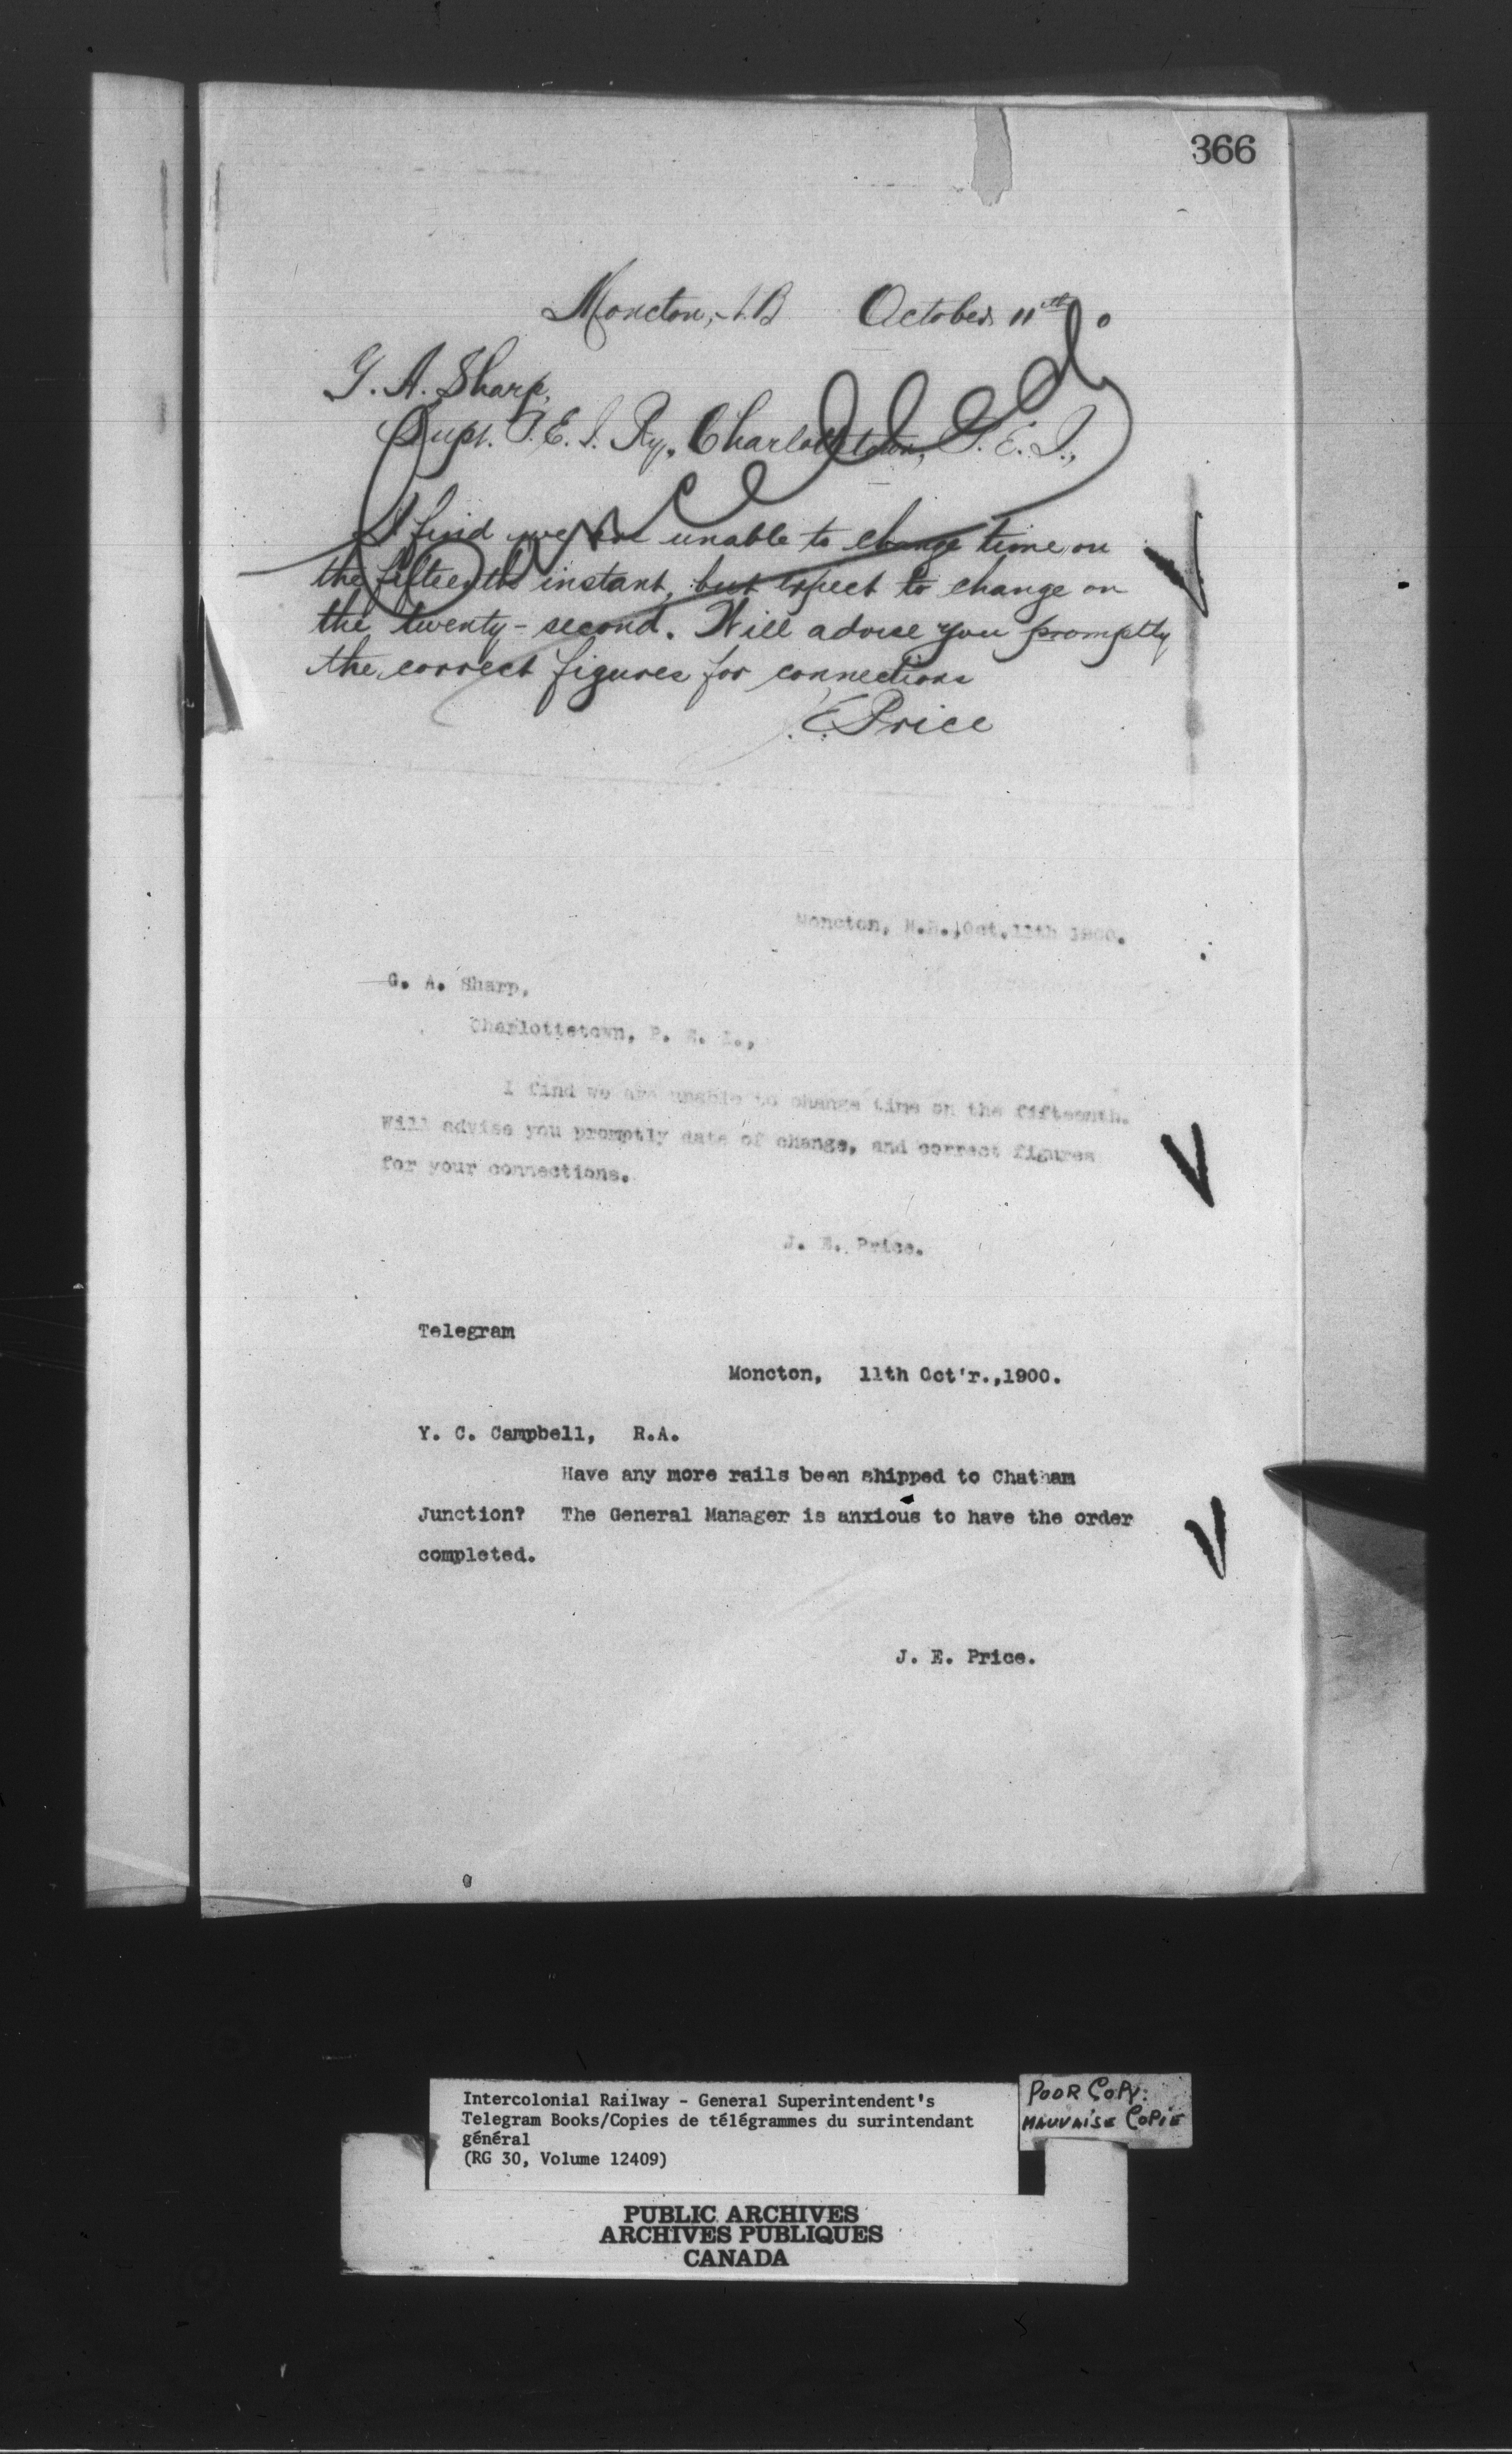 366
Moncton, N.B October 11th 0
G. A. Sharp,
Supt. P. E. I. Ry., Charlottetown, P. E. I.,
Cancelled
I find we are unable to change time on
the fifteenth instant, but expect to change on
the twenty-second. Will advise you promptly
the correct figures for connections
J. E. Price
Moncton, N.B., Oct. 11th 1900.
G. A. Sharp,
Charlottetown, P. E. I.,
I find we are unable to change time on the fifteenth.
Will advise you promptly date of change, and correct figures
for your connections.
J. E. Price.
Telegram
Moncton, 11th Oct'r.,1900.
Y. C. Campbell, R.A.
Have any more rails been shipped to Chatham
Junction? The General Manager is anxious to have the order
completed.
J. E. Price.
Intercolonial Railway - General Superintendent's
Telegram Books/Copies de télégrammes du surintendant
général
(RG 30, Volume 12409)
POOR COPY:
MAUVAISE COPIE
PUBLIC ARCHIVES
ARCHIVES PUBLIQUES
CANADA